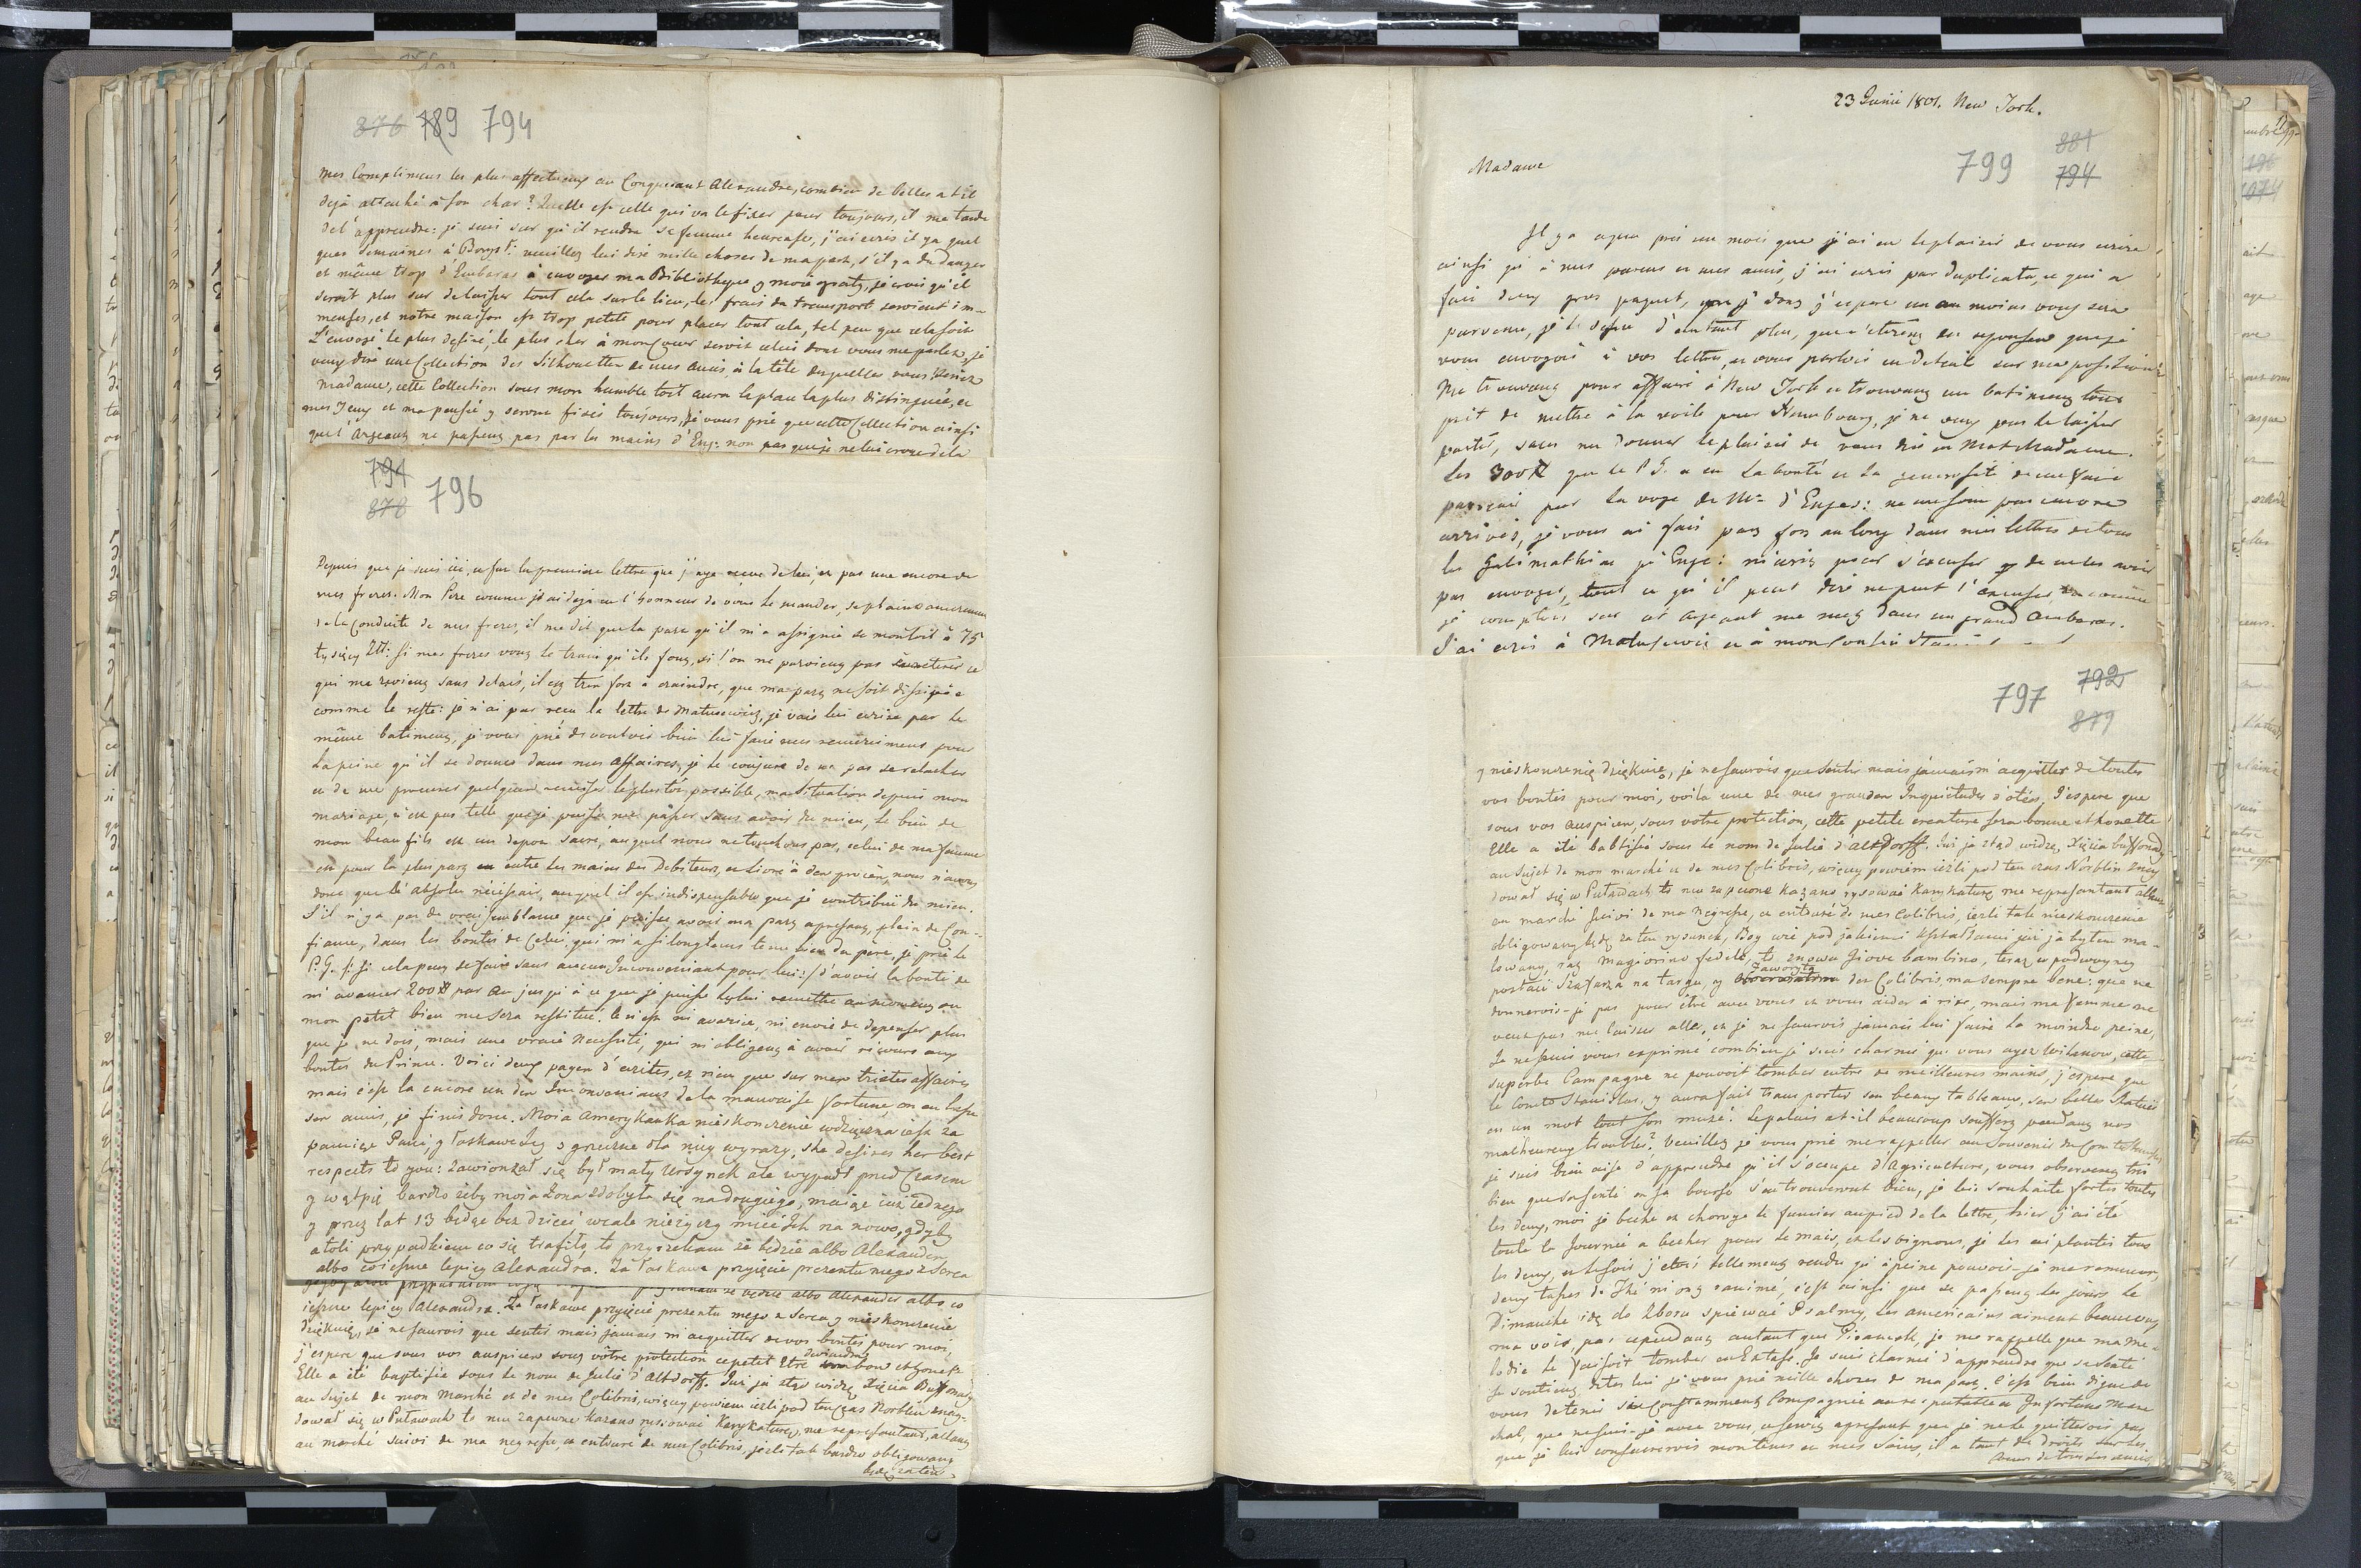 876 789 794
mes Complimens les plus affectueux au Conquerant Alexandre, combien de belles at il
deja attaché à son char? Quelle est celle qui va le fixer pour toujours, il me tarde
de l'apprendre: je suis sur qu'il rendra sa femme heureuse, j'ai ecris il y a quel
ques semaines à veuillez lui dire mille choses de ma part, s'il y a du danger
et même trop d'Embaras à envoyer ma Bibliotheque y moie graty, je crois qu'il
seroit plus sur de laisser tout cela sur le lieu, les frais du transport seroient im-
menses, et notre maison est trop petite pour placer tout cela, tel peu que cela soit
L'envoye le plus desiré, le plus cher à mon Coeur seroit celui dont vous me parlez, je
veux dire une Collection des Silhouettes de mes Amis, à la tête desquelles vous seriez
Madame, cette Collection sous mon humble toit aura la place la plus distinguée, et
mes Yeux et ma pensée y seront fixés toujours, je vous prie que cette Collection ainsi
que l'Argeant ne passent pas par les mains d'Enj: non pas que je ne lui croye de la
794
878 796
Depuis que je suis ici, ce fut la premiere lettre que j'aye recue de lui, et pas une encore de
mes freres. Mon Pere comme j'ai deja eu l'honneur de vous le mander, se plaint amerement
de la Conduite de mes freres, il me dit que la part qu'il m'a assignée se montoit à 75
tysięcy Złł: si mes freres vont le train qu'ils font, si l'on ne parvient pas à retenir ce
qui me revient sans delais, il est tres fort à craindre, que ma part ne soit dissipée
comme le reste: je n'ai pas recu la lettre de Matusewicz, je vais lui ecrire par le
même batiment, je vous prie de vouloir bien lui faire mes remerciments pour
la peine qu'il se donne dans mes affaires, je le conjure de ne pas se relacher
et de me procurer quelque remise le plus tôt possible, ma situation depuis mon
mariage, n'est pas telle que je puisse me passer sans avoir du mien, le bien de
mon beau fils est un depot sacré, auquel nous ne touchons pas, celui de ma femme
est pour la plus part entre les mains des Debiteurs, et livré à des procès, nous n'avons
donc que l'absolu nécessaire, auquel il est indispensable que je contribue du mien.
S'il n'y a pas de vraisemblance que je puisse avoir ma part apresent, plein de Con-
fiance, dans les bontés de Celui, qui m'a si longtems tenu lieu de pere, je prie le
P. G. /: si cela peut se faire sans aucun Inconveniant pour lui :/ d'avoir la bonté de
m'avancer 200# par an jusqu'à ce que je puisse les lui remettre au moment ou
mon petit bien me sera restitué. Ce n'est ni avarice, ni envie de depenser plus
que je ne dois, mais une vraie necessité, qui m'obligent à avoir recours aux
bontés du Prince. Voici deux pages d'ecrites, et rien que sur mes tristes affaires
mais c'est la encore un des Inconveniens de la mauvaise fortune, on en lasse
ses amis, je finis donc. Moia Amerykanka nieskonczenie wdzięczna iest za
pamięc Pani y łaskawe iey y grzeczne dla niey wyrazy, she desires her best
respects to you: Zawionzał się był mały Ursynek ale wypadł pred Czasem
y wątpię bardzo żeby moia Zona zdobyła się na drugiego, maiąc iuz iednego
y przez lat 13 będąc bez dzieci wcale nieżyczy mieć ich na nowo, gdyby
atoli przypadkiem co się trafiło, to przyrzekam że będzie albo Alexander
albo co iescze lepiey Alexandra. Za łaskawe przyięcie prezentu mego z Serca
iescze lepiey Alexandra. Za łaskawe przyięcie prezentu mego z Serca y nieskonczenie
dziękuię, je ne saurois que sentir mais jamais m'acquitter de vos bontés pour moi,
j'espere que sous vos auspices sous vôtre protection ce petit Etre deviendra bon et honete
Elle a été baptisée sous le nom de Julie d'Altdorff. Jui ja ztąd widzę Xięcia Buffonady
au Sujet de mon Marché et de mes Colibris, więcey powiem ieżli pod tenczas Norblin znay-
dował się w Puławach to mu zapewne kazano rysować Karykaturę, me representant, allant
au marché suivi de ma negresse, et entouré de mes Colibris, jezli tak bardzo obligowany
będę za ten
23 Junii 1801. New York.
799 881
794
Madame
Il y a a peu près un mois que j'ai eu le plaisir de vous ecrire
ainsi qu'à mes parens et mes amis, j'ai ecris par duplicata, ce qui a
fait deux gros paquet, dont j'espere un au moins vous sera
parvenu, je le desire d'autant plus, que c'etoient des reponses que je
vous envoyois à vos lettres, et vous parlois en detail sur ma position.
Me trouvant pour affaire à New York et trouvant un batiment tout
pret de mettre à la voile pour Hambourg, je ne veux pas le laisser
partir, sans me donner le plaisir de vous dire un Mot Madame.
Les 300# que le P G. a eu la bonté et la generosité de me faire
parvenir par la voye de Mr d'Enges: ne me sont pas encore
arrivés, je vous ai fait part fort au long dans mes lettres de tous
les Galimathias qu'Enge: m'ecris pour s'excuser de ne les avoir
pas envoyés, tout ce qu'il peut dire ne peut l'excuser, et comme
je comptois sur cet argeant me met dans un grand embaras.
J'ai ecris à Matusewic et à mon Cousin
797 792
879
y nieskonczenie dziękuię, je ne saurois que sentir mais jamais m'acquitter de toutes
vos bontés pour moi, voila une de mes grandes Inquietudes d'otées, J'espere que
sous vos auspices, sous votre protection, cette petite creature sera bonne et honette
Elle a été babtisée sous le nom de Julie d'Altdorff. Jui ja ztąd widzę, Xięcia buffonady
au sujet de mon marché et de mes Colibris, więcey powiem ieżli pod ten czas Norblin znay
dował się w Puławach to mu zapewne kazano rysować Karykaturę me representant allant
au marché suivi de ma Negresse, et entouré de mes Colibris, ieżli tak nieskonczenie
obligowany będę za ten rysunek, Bog wie pod jakiemi kształtami jui ja byłem ma-
lowany, raz Magiorino fedele, to znowu Giove bambino, teraz w podwoyney
postaci Szafarza na targu, y Faworyta des Colibris, ma sempre bene: que ne
donnerois-je pas pour être avec vous et vous aider à rire, mais ma femme ne
veut pas me laisser aller, et je ne saurois jamais lui faire la moindre peine,
Je ne puis vous exprimé combien je suis charmé que vous ayez Wilanow, cette
superbe Campagne ne pouvoit tomber entre de meilleures mains, j'espere que
le Comte Stanislas, y aura fait transporter ses beaux tableaux, ses belles Statues
en un mot tout son musé. Le palais at-il beaucoup souffert pendant nos
malheureux troubles? Veuillez je vous prie me rappeller au Souvenir du Comte
je suis bien aise d'apprendre qu'il s'occupe d'Agriculture, vous observez très
bien que sa santé et sa bourse s'en trouveront bien, je lui souhaite fortes toutes
les deux, moi je beche et charoye le fumier au pied de la lettre, hier j'ai été
toute la Journée a becher pour le mais, et les oignons, je les ai plantés tous
les deux, et le soir j'etois tellement rendu qu'à peine pouvois-je me ramener,
deux tasses de Thé m'ont ranimé, c'est ainsi que se passent les jours le
Dimanche idę do Zboru spiewać Psalmy, les americains aiment beaucoup
ma voix, pas cependant autant que Picaneck, je me rappelle que ma me-
lodie le faisoit tomber en Extase. Je suis charmé d'apprendre que sa santé
se soutient, dites lui je vous prie mille choses de ma part. C'est bien digne de
vous de tenir si constamment Compagnie au respectable et Infortuné Mare
chal, que ne suis-je avec vous, assurez apresent que je ne le quitterois pas
que je lui consacrerois mon tems et mes soins, il a tant de droits sur les
Coeurs de tous ses amis